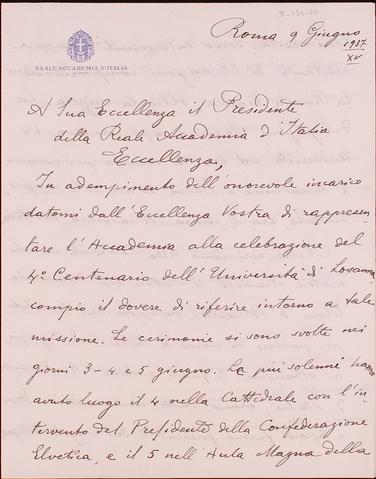 REALE ACCADEMIA D'ITALIA
Roma 9 Giugno
1937
XV
A Sua Eccellenza il Presidente
della Reale Accademia d'Italia
Eccellenza,
In adempimento dell'onorevole incarico
datomi dall'Eccellenza Vostra di rappresen-
tare l'Accademia alla celebrazione del
4º Centenario dell'Università di Losanna
compio il dovere di riferire intorno a tale
missione. Le cerimonie si sono svolte nei
giorni 3-4 e 5 giugno. Le più solenni hanno
avuto luogo il 4 nella Cattedrale con l'in-
tervento del Presidente della Confederazione
Elvetica, e il 5 nell'Aula Magna della